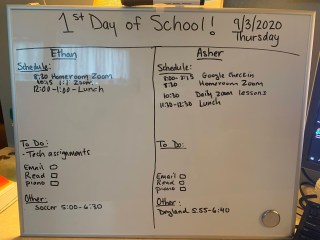 1st Day of School!
9/3/2020
Thursday
Ethan
Schedule:
8:30 Homeroom Zoom
10:15 1:1 Zoom
12:00-1:00 - Lunch
To Do:
- Tech assignments
Email
Read
piano
Other:
Soccer 5:00-6:30
Asher
Schedule:
Google Checkin
8:30 Homeroom Zoom
10:30 Daily Zoom Lessons
11:30-12:30 Lunch
To Do:
Email
Read
piano
Other:
Dayland 5:55-6:40